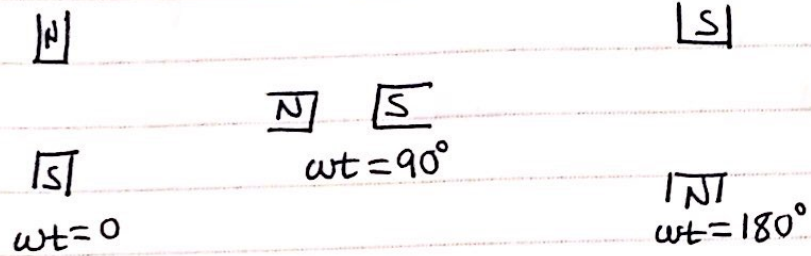 N
S
N S
ωt = 90°
S
ωt = 0
N
ωt = 180°